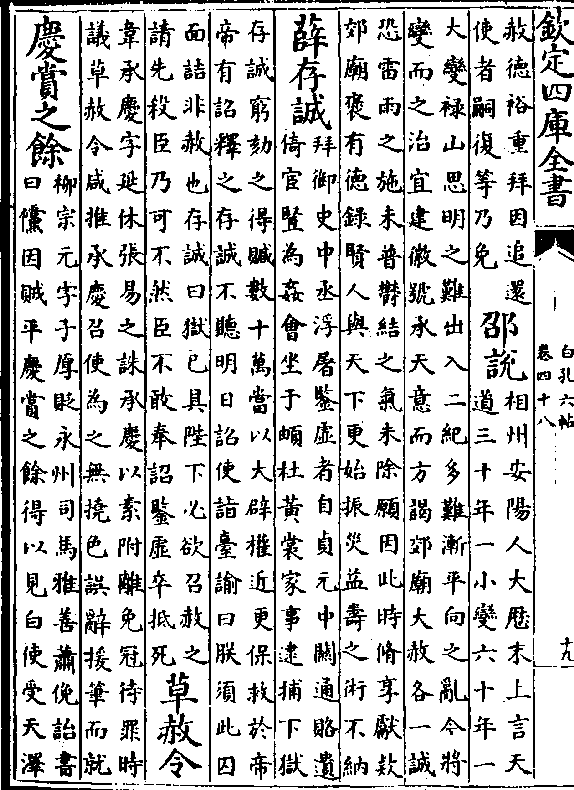 欽定四庫全書
白孔六帖
卷四十八
十九
赦德裕重拜因追還
使者嗣復等乃免
邵說
相州安陽人大歷末上言天
道三十年一小變六十年一
大變禄山思明之難出入二紀多難漸平向之亂今將
變而之治宜建徽號承天意而方謁郊廟大赦各一誠
恐雷雨之施未普鬱結之氣未除願因此時脩享獻款
郊廟褒有德錄賢人與天下更始振災益壽之術不納
薛存誠
拜御史中丞浮屠鑒虛者自貞元中關通賂遺
倚宦豎為姦會坐于頔杜黃裳家事逮捕下獄
存誠窮劾之得贓數十萬當以大辟權近更保救於帝
帝有詔釋之存誠不聽明日詔使詣臺諭曰朕須此囚
面詰非赦也存誠曰獄已具陛下必欲召赦之
請先殺臣乃可不然臣不敢奉詔鑒虛卒抵死
草赦令
韋承慶字延休張易之誅承慶以素附離免冠待罪時
議草赦令咸推承慶召使為之無撓色誤辭援筆而就
慶賞之餘
柳宗元字子厚貶永州司馬雅善蕭俛詒書
曰儻因賊平慶賞之餘得以見白使受天澤